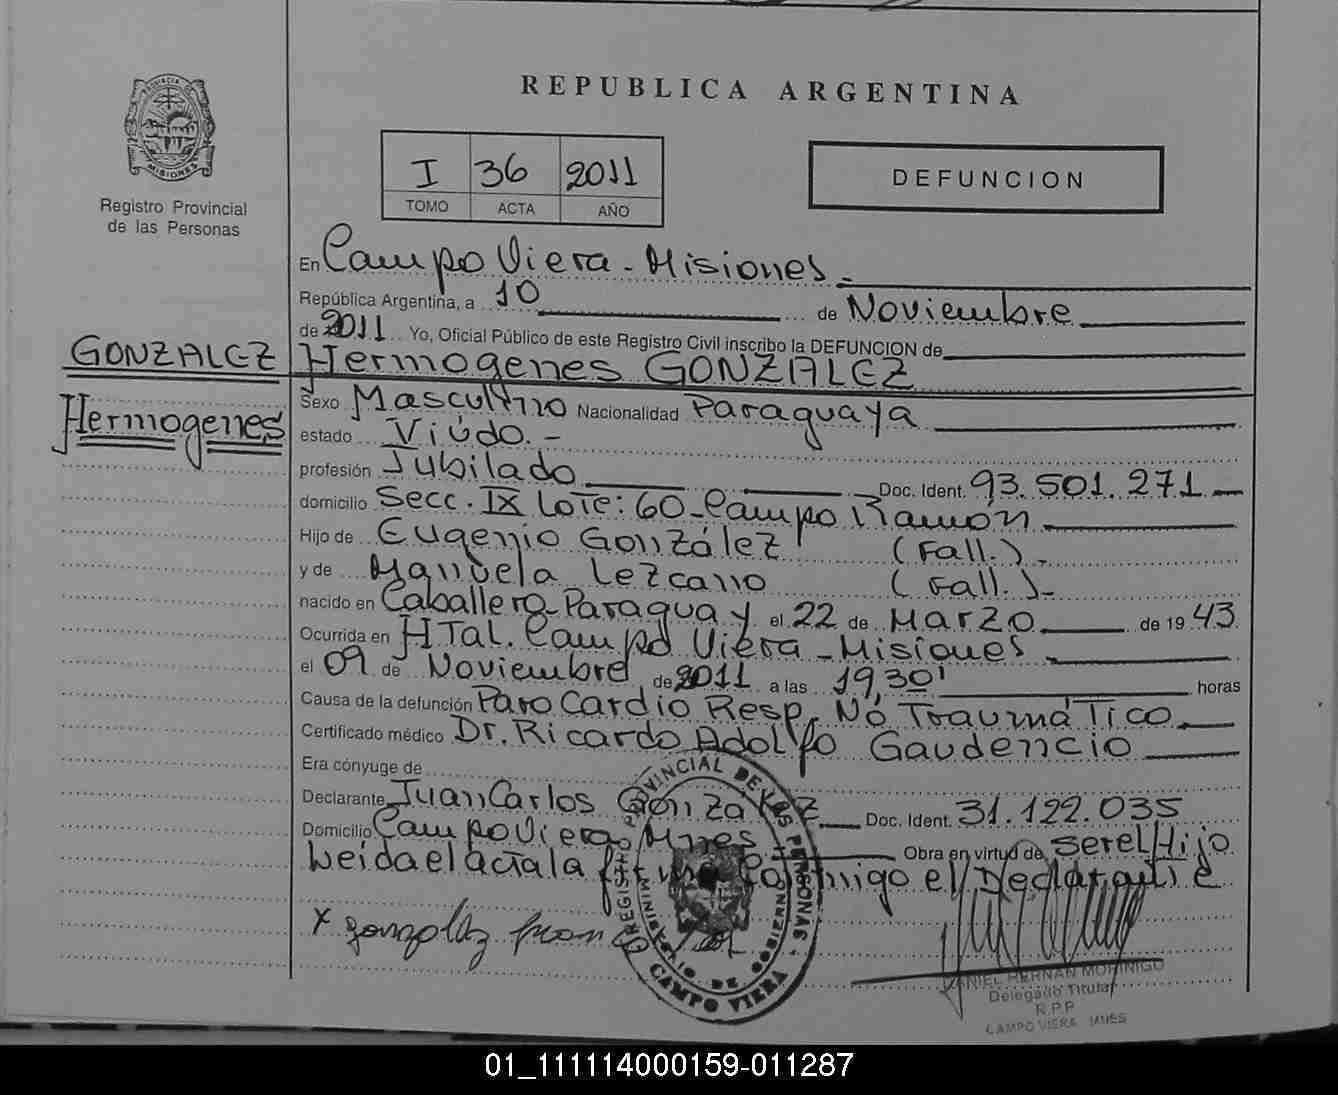 REPUBLICA ARGENTINA
PROVINCIA DE
MISIONES
Registro Provincial
de las Personas
I 36 2011
TOMO ACTA AÑO
DEFUNCION
En Campo Viera - Misiones -
República Argentina, a 10 de Noviembre
de 2011 Yo, Oficial Público de este Registro Civil inscribo la DEFUNCION de
GONZALEZ Hermogenes GONZALEZ
Hermogenes
Sexo Masculino Nacionalidad Paraguaya
estado Viúdo. -
profesión Jubilado Doc. Ident. 93.501.271
domicilio Secc. IX Lote: 60 - Campo Ramón
Hijo de Eugenio González (Fall.) -
y de Manuela Lezcano (Fall.) -
nacido en Caballero - Paraguay el 22 de Marzo de 1943
Ocurrida en HTal. Campo Viera - Misiones
el 09 de Noviembre de 2011 a las 19,30' horas
Causa de la defunción Paro Cardio Resp. No Traumático
Certificado médico Dr. Ricardo Adolfo Gaudencio
Era cónyuge de
Declarante Juan Carlos González Doc. Ident. 31.122.035
Domicilio Campo Viera Mnes Obra en virtud de ser el Hijo
Leida el acta la firma conmigo el Declarante
x gonzalez Juan
REGISTRO PROVINCIAL DE LAS PERSONAS
MINISTERIO DE GOBIERNO
CAMPO VIERA
DANIEL HERNAN MORINIGO
Delegado Titular
R.P.P
CAMPO VIERA MNES
01_111114000159-011287